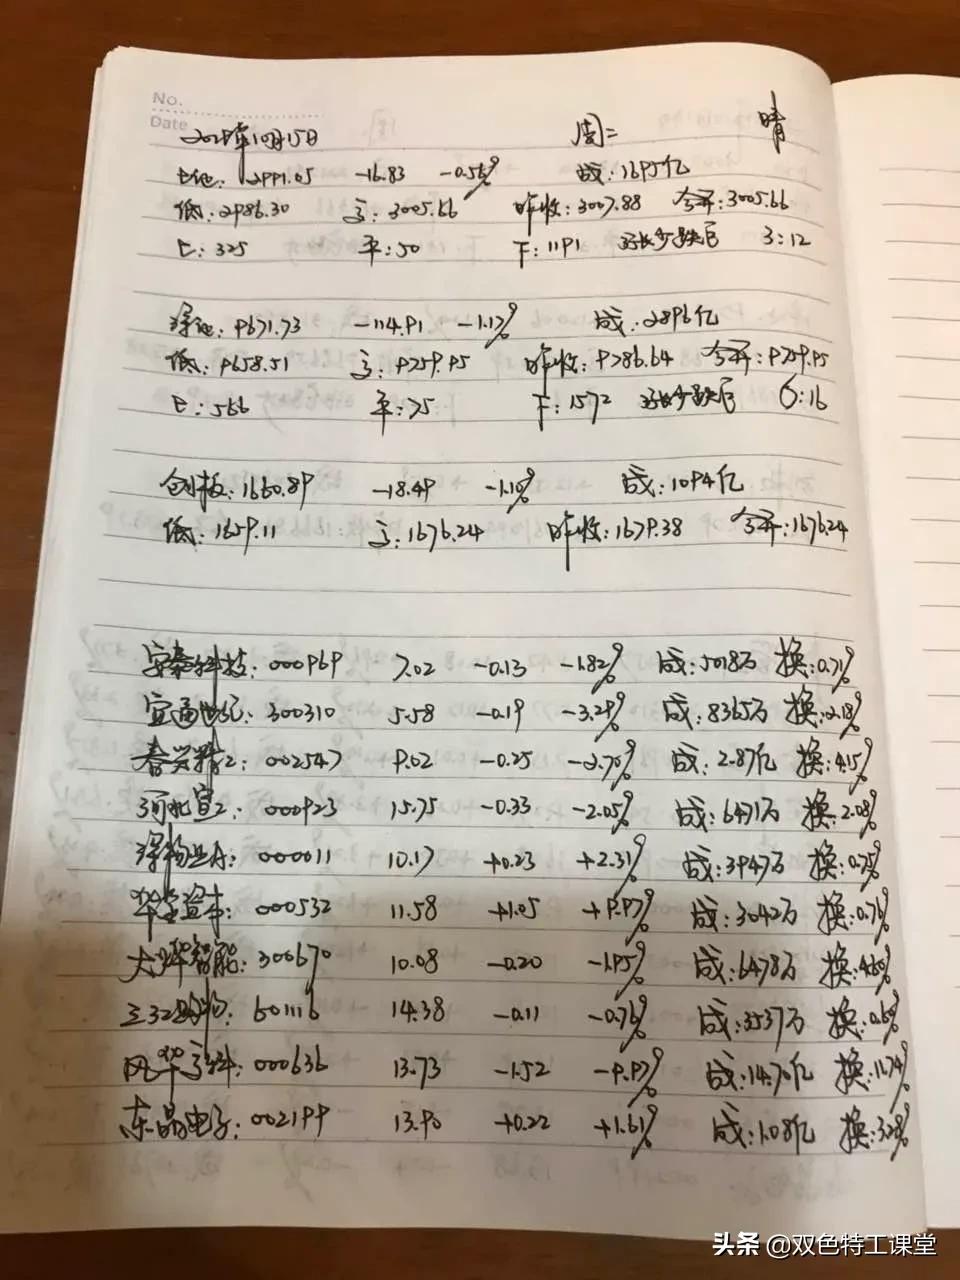 No.
Date
2019年10月15日 周二 晴
上证: 2991.05 -16.83 -0.56% 成:1695亿
低:2986.30 高:3005.66 昨收:3007.88 今开:3005.66
上:325 平:50 下:1191 3:12
深证:9671.73 -114.91 -1.17% 成:2896亿
低:9658.51 高:9759.95 昨收:9786.64 今开:9759.95
上:566 平:75 下:1572 6:16
创板:1660.89 -18.49 -1.10% 成:1094亿
低:1659.11 高:1676.24 昨收:1679.38 今开:1676.24
安泰科技:000969 7.02 -0.13 -1.82% 成:5018万 换:0.71%
宜通世纪:300310 5.58 -0.19 -3.29% 成:8365万 换:2.18%
春兴精工:002547 9.02 -0.25 -2.70% 成:2.87亿 换:4.15%
河北宣工:000923 15.75 -0.33 -2.05% 成:6471万 换:2.08%
深物业A:000011 10.17 +0.23 +2.31% 成:3947万 换:0.75%
华金资本:000532 11.58 +1.05 +9.97% 成:3042万 换:0.76%
大烨智能:300670 10.08 -0.20 -1.95% 成:6478万 换:4.60%
三江购物:601116 14.38 -0.11 -0.76% 成:3537万 换:0.60%
风华高科:000636 13.73 -1.52 -9.97% 成:14.70亿 换:11.74%
东晶电子:002199 13.90 +0.22 +1.61% 成:1.08亿 换:3.28%
头条 @双色特工课堂